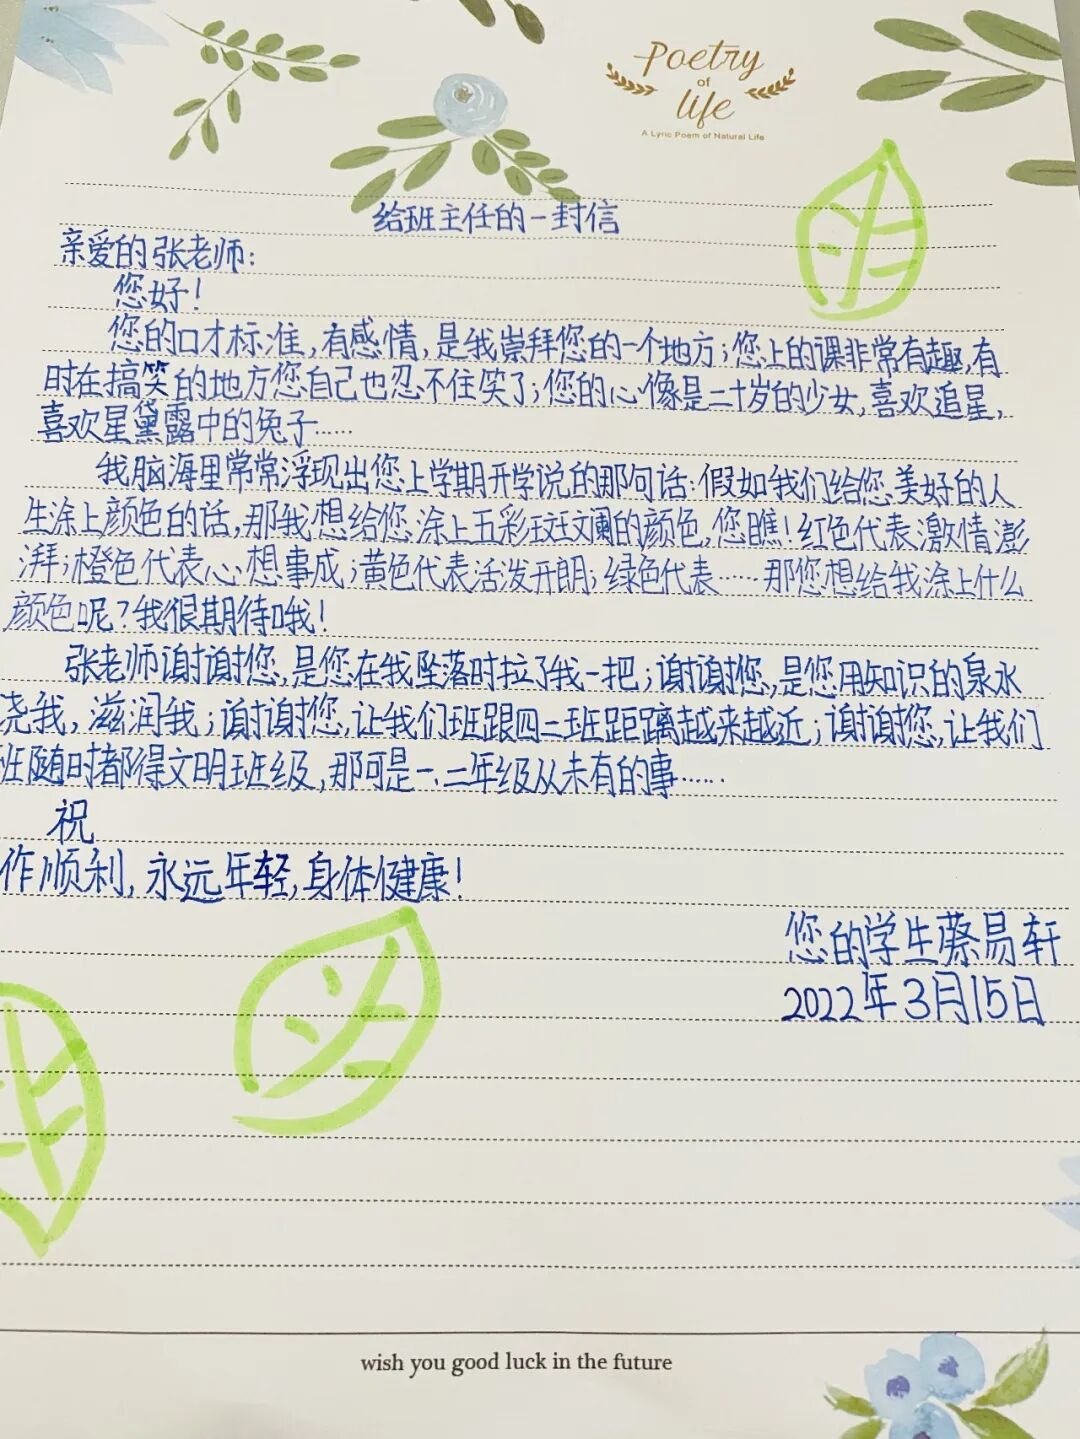 Poetry
of
life
A Lyric Poem of Natural Life
给班主任的一封信
亲爱的张老师:
您好!
您的口才标准,有感情,是我崇拜您的一个地方;您上的课非常有趣,有
时在搞笑的地方您自己也忍不住笑了;您的心像是二十岁的少女,喜欢追星,
喜欢星黛露中的兔子……
我脑海里常常浮现出您上学期开学说的那句话:假如我们给您美好的人
生涂上颜色的话,那我想给您涂上五彩斑斓的颜色,您瞧!红色代表激情澎
湃;橙色代表心想事成;黄色代表活泼开朗;绿色代表……那您想给我涂上什么
颜色呢?我很期待哦!
张老师谢谢您,是您在我坠落时拉了我一把;谢谢您,是您用知识的泉水
浇我,滋润我;谢谢您,让我们班跟四二班距离越来越近;谢谢您,让我们
班随时都得文明班级,那可是一、二年级从未有的事……
祝
作顺利,永远年轻,身体健康!
您的学生蔡易轩
2022年3月15日
wish you good luck in the future